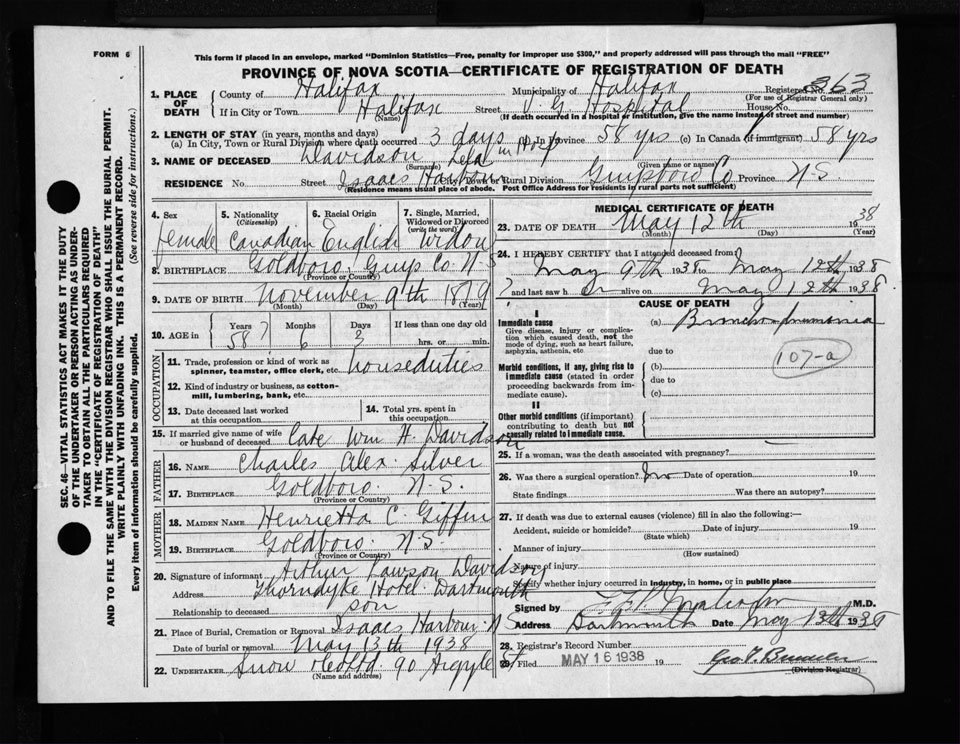 FORM 6
This form if placed in an envelope, marked "Dominion Statistics—Free, penalty for improper use $300," and properly addressed will pass through the mail "FREE"
PROVINCE OF NOVA SCOTIA—CERTIFICATE OF REGISTRATION OF DEATH
1. PLACE OF DEATH
County of Halifax Municipality of Halifax Registered No. 363
(For use of Registrar General only)
If in City or Town Halifax Street V. G. Hospital House No.
(Name) (If death occurred in a hospital or institution, give the name instead of street and number)
2. LENGTH OF STAY (in years, months and days)
(a) In City, Town or Rural Division where death occurred 3 days in Hosp (b) In Province 58 yrs (c) In Canada (if immigrant) 58 yrs
3. NAME OF DECEASED Davidson Lela
(Surname) (Given name or names)
RESIDENCE No. Street Isaacs Harbour City, Town or Rural Division Guysboro Co Province N-S
(Residence means usual place of abode. Post Office Address for residents in rural parts not sufficient)
4. Sex female
5. Nationality (Citizenship) Canadian
6. Racial Origin English
7. Single, Married, Widowed or Divorced (write the word) Widow
8. BIRTHPLACE Goldboro Guys Co N-S
(Province or Country)
9. DATE OF BIRTH November 9th 1879
(Month) (Day) (Year)
10. AGE in Years 58 ? Months 6 Days 3 If less than one day old hrs. or min.
OCCUPATION
11. Trade, profession or kind of work as spinner, teamster, office clerk, etc. houseduties
12. Kind of industry or business, as cotton-mill, lumbering, bank, etc.
13. Date deceased last worked at this occupation
14. Total yrs. spent in this occupation
15. If married give name of wife or husband of deceased late Wm H. Davidson
FATHER
16. NAME Charles Alex. Silver
17. BIRTHPLACE Goldboro N.S.
(Province or Country)
MOTHER
18. MAIDEN NAME Henrietta C. Giffin
19. BIRTHPLACE Goldboro N.S
(Province or Country)
20. Signature of informant Arthur Lawson Davidson
Address Thorndyke Hotel Dartmouth
Relationship to deceased son
21. Place of Burial, Cremation or Removal Isaacs Harbour N S
Date of burial or removal May 13th 1938
22. UNDERTAKER Snow & Co Ltd. 90 Argyle St
(Name and address)
MEDICAL CERTIFICATE OF DEATH
23. DATE OF DEATH May 12th 1938
(Month) (Day) (Year)
24. I HEREBY CERTIFY that I attended deceased from
May 9th 1938 to May 12th 1938
and last saw h er alive on May 12th 1938
CAUSE OF DEATH
I
Immediate cause (a) Broncho pneumonia
Give disease, injury or complication which caused death, not the mode of dying, such as heart failure, asphyxia, asthenia, etc
due to
107-a
Morbid conditions, if any, giving rise to immediate cause (stated in order proceeding backwards from immediate cause).
(b)
due to
(c)
II
Other morbid conditions (if important) contributing to death but not causally related to immediate cause.
25. If a woman, was the death associated with pregnancy?
26. Was there a surgical operation? no Date of operation 19
State findings Was there an autopsy?
27. If death was due to external causes (violence) fill in also the following:—
Accident, suicide or homicide? Date of injury 19
(State which)
Manner of injury
(How sustained)
Nature of injury
Specify whether injury occurred in industry, in home, or in public place
Signed by M.D.
Address Dartmouth Date May 13th 1938
28. Registrar's Record Number
29. Filed MAY 16 1938 19
(Division Registrar)
SEC. 46—VITAL STATISTICS ACT MAKES IT THE DUTY
OF THE UNDERTAKER OR PERSON ACTING AS UNDER-
TAKER TO OBTAIN ALL THE PARTICULARS REQUIRED
IN THE "CERTIFICATE OF REGISTRATION OF DEATH"
AND TO FILE THE SAME WITH THE DIVISION REGISTRAR WHO SHALL ISSUE THE BURIAL PERMIT.
WRITE PLAINLY WITH UNFADING INK. THIS IS A PERMANENT RECORD.
Every item of information should be carefully supplied. (See reverse side for instructions.)